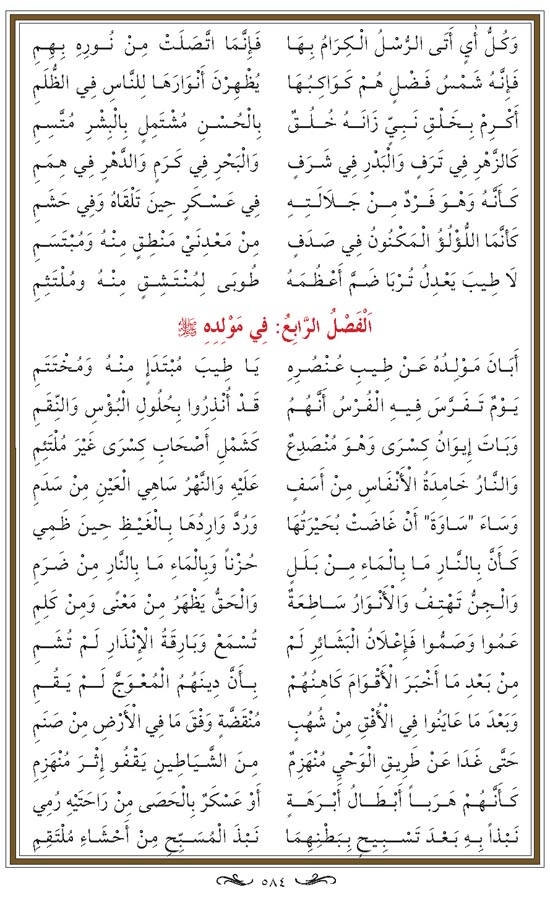 وَكُلُّ أٰيٍ أَتَى الرُّسْلُ الْكِرَامُ بِهَا فَإِنَّمَا اتَّصَلَتْ مِنْ نُورِهِ بِهِمِ
فَإِنَّهُ شَمْسُ فَضْلٍ هُمْ كَوَاكِبُهَا يُظْهِرْنَ أَنْوَارَهَا لِلنَّاسِ فِي الظُّلَمِ
أَكْرِمْ بِخَلْقِ نَبِيٍّ زَانَهُ خُلُقٌ بِالْحُسْنِ مُشْتَمِلٍ بِالْبِشْرِ مُتَّسِمِ
كَالزَّهْرِ فِي تَرَفٍ وَالْبَدْرِ فِي شَرَفٍ وَالْبَحْرِ فِي كَرَمٍ وَالدَّهْرِ فِي هِمَمِ
كَأَنَّهُ وَهْوَ فَرْدٌ مِنْ جَلَالَتِهِ فِي عَسْكَرٍ حِينَ تَلْقَاهُ وَفِي حَشَمِ
كَأَنَّمَا اللُّؤْلُؤُ الْمَكْنُونُ فِي صَدَفٍ مِنْ مَعْدِنَيْ مَنْطِقٍ مِنْهُ وَمُبْتَسَمِ
لَا طِيبَ يَعْدِلُ تُرْبًا ضَمَّ أَعْظُمَهُ طُوبَى لِمُنْتَشِقٍ مِنْهُ ومُلْتَثِمِ
اَلْفَصْلُ الرَّابِعُ: فِي مَوْلِدِهِ ﷺ
أَبَانَ مَوْلِدُهُ عَنْ طِيبِ عُنْصُرِهِ يَا طِيبَ مُبْتَدَإٍ مِنْهُ وَمُخْتَتَمِ
يَوْمٌ تَفَرَّسَ فِيهِ الْفُرْسُ أَنَّهُمُ قَدْ أُنْذِرُوا بِحُلُولِ الْبُؤْسِ وَالنِّقَمِ
وَبَاتَ إِيوَانُ كِسْرَى وَهْوَ مُنْصَدِعٌ كَشَمْلِ أَصْحَابِ كِسْرَى غَيْرَ مُلْتَئِمِ
وَالنَّارُ خَامِدَةُ الْأَنْفَاسِ مِنْ أَسَفٍ عَلَيْهِ وَالنَّهْرُ سَاهِي الْعَيْنِ مِنْ سَدَمِ
وَسَاءَ "سَاوَةَ" أَنْ غَاضَتْ بُحَيْرَتُهَا وَرُدَّ وَارِدُهَا بِالْغَيْظِ حِينَ ظَمِي
كَأَنَّ بِالنَّارِ مَا بِالْمَاءِ مِنْ بَلَلٍ حُزْناً وَبِالْمَاءِ مَا بِالنَّارِ مِنْ ضَرَمِ
وَالْجِنُّ تَهْتِفُ وَالْأَنْوَارُ سَاطِعَةٌ وَالْحَقُّ يَظْهَرُ مِنْ مَعْنًى وَمِنْ كَلِمِ
عَمُوا وَصَمُّوا فَإِعْلَانُ الْبَشَائِرِ لَمْ تُسْمَعْ وَبَارِقَةُ الْإِنْذَارِ لَمْ تُشَمِ
مِنْ بَعْدِ مَا أَخْبَرَ الْأَقْوَامَ كَاهِنُهُمْ بِأَنَّ دِينَهُمُ الْمُعْوَجَّ لَمْ يَقُمِ
وَبَعْدَ مَا عَايَنُوا فِي الْأُفْقِ مِنْ شُهُبٍ مُنْقَضَّةٍ وَفْقَ مَا فِي الْأَرْضِ مِنْ صَنَمِ
حَتَّى غَدَا عَنْ طَرِيقِ الْوَحْيِ مُنْهَزِمٌ مِنَ الشَّيَاطِينِ يَقْفُو إِثْرَ مُنْهَزِمِ
كَأَنَّهُمْ هَرَباً أَبْطَالُ أَبْرَهَةٍ أَوْ عَسْكَرٌ بِالْحَصَى مِنْ رَاحَتَيْهِ رُمِي
نَبْذاً بِهِ بَعْدَ تَسْبِيحٍ بِبَطْنِهِمَا نَبْذَ الْمُسَبِّحِ مِنْ أَحْشَاءِ مُلْتَقِمِ
٥٨٤